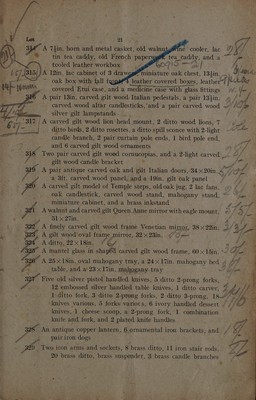 Lot 21
314 A 7in. horn and metal casket, old walnut wine cooler, lac
tin tea caddy, old French papered tea caddy, and a
tooled leather workbox
315 A 12in. lac cabinet of 3 drawers, miniature oak chest, 13in.
oak box with fall front, 4 leather covered boxes, leather
covered Etui case, and a medicine case with glass fittings
A pair 13in. carved gilt wood Italian pedestals, a pair 13in.
carved wood altar candlesticks, and a pair carved wood
silver gilt lampstands
317 A carved gilt wood lion head mount, 2 ditto wood lions, 7
ditto birds, 2 ditto masks, a ditto spill sconce with 2-light
candle branch, 2 pair curtain pole ends, 1 bird pole end,
and 6 carved gilt wood ornaments
318 Two pair carved gilt wood cornucopias, and a 2-light carved
gilt wood candle bracket
319 A pair antique carved oak and gilt Italian doors, 34 × 20in.
a 30. carved wood panel, and a 40in. gilt oak panel
320 A carved gilt model of Temple steps, old oak jug, 2 lac fans,
oak candlestick, carved wood stand, mahogany stand,
miniature cabinet, and a brass inkstand
321 A walnut and carved gilt Queen Anne mirror with eagle mount,
51 × 27in.
322 A finely carved gilt wood frame Venetian mirror, 38 × 22in.
323 A gilt wood oval frame mirror, 32 × 23in.
324 A ditto, 22 × 18in.
325 A mantel glass in shaped carved gilt wood frame, 60 × 18in.
326 A 23 × 18in. oval mahogany tray, a 24 × 17in. mahogany bed
table, and a 23 × 17in. mahogany tray
327 Five old silver pistol handled knives, 3 ditto 2-prong forks,
12 embossed silver handled table knives, 1 ditto carver,
1 ditto fork, 3 ditto 2-prong forks, 2 ditto 3-prong, 18
knives various, 3 forks various, 6 ivory handled dessert
knives, 1 cheese scoop, a 2-prong fork, 1 combination
knife and fork, and 2 plated knife handles
328 An antique copper lantern, 6 ornamental iron brackets, and
pair iron dogs
329 Two iron arms and sockets, 8 brass ditto, 11 iron stair rods,
20 brass ditto, brass suspender, 3 brass candle branches